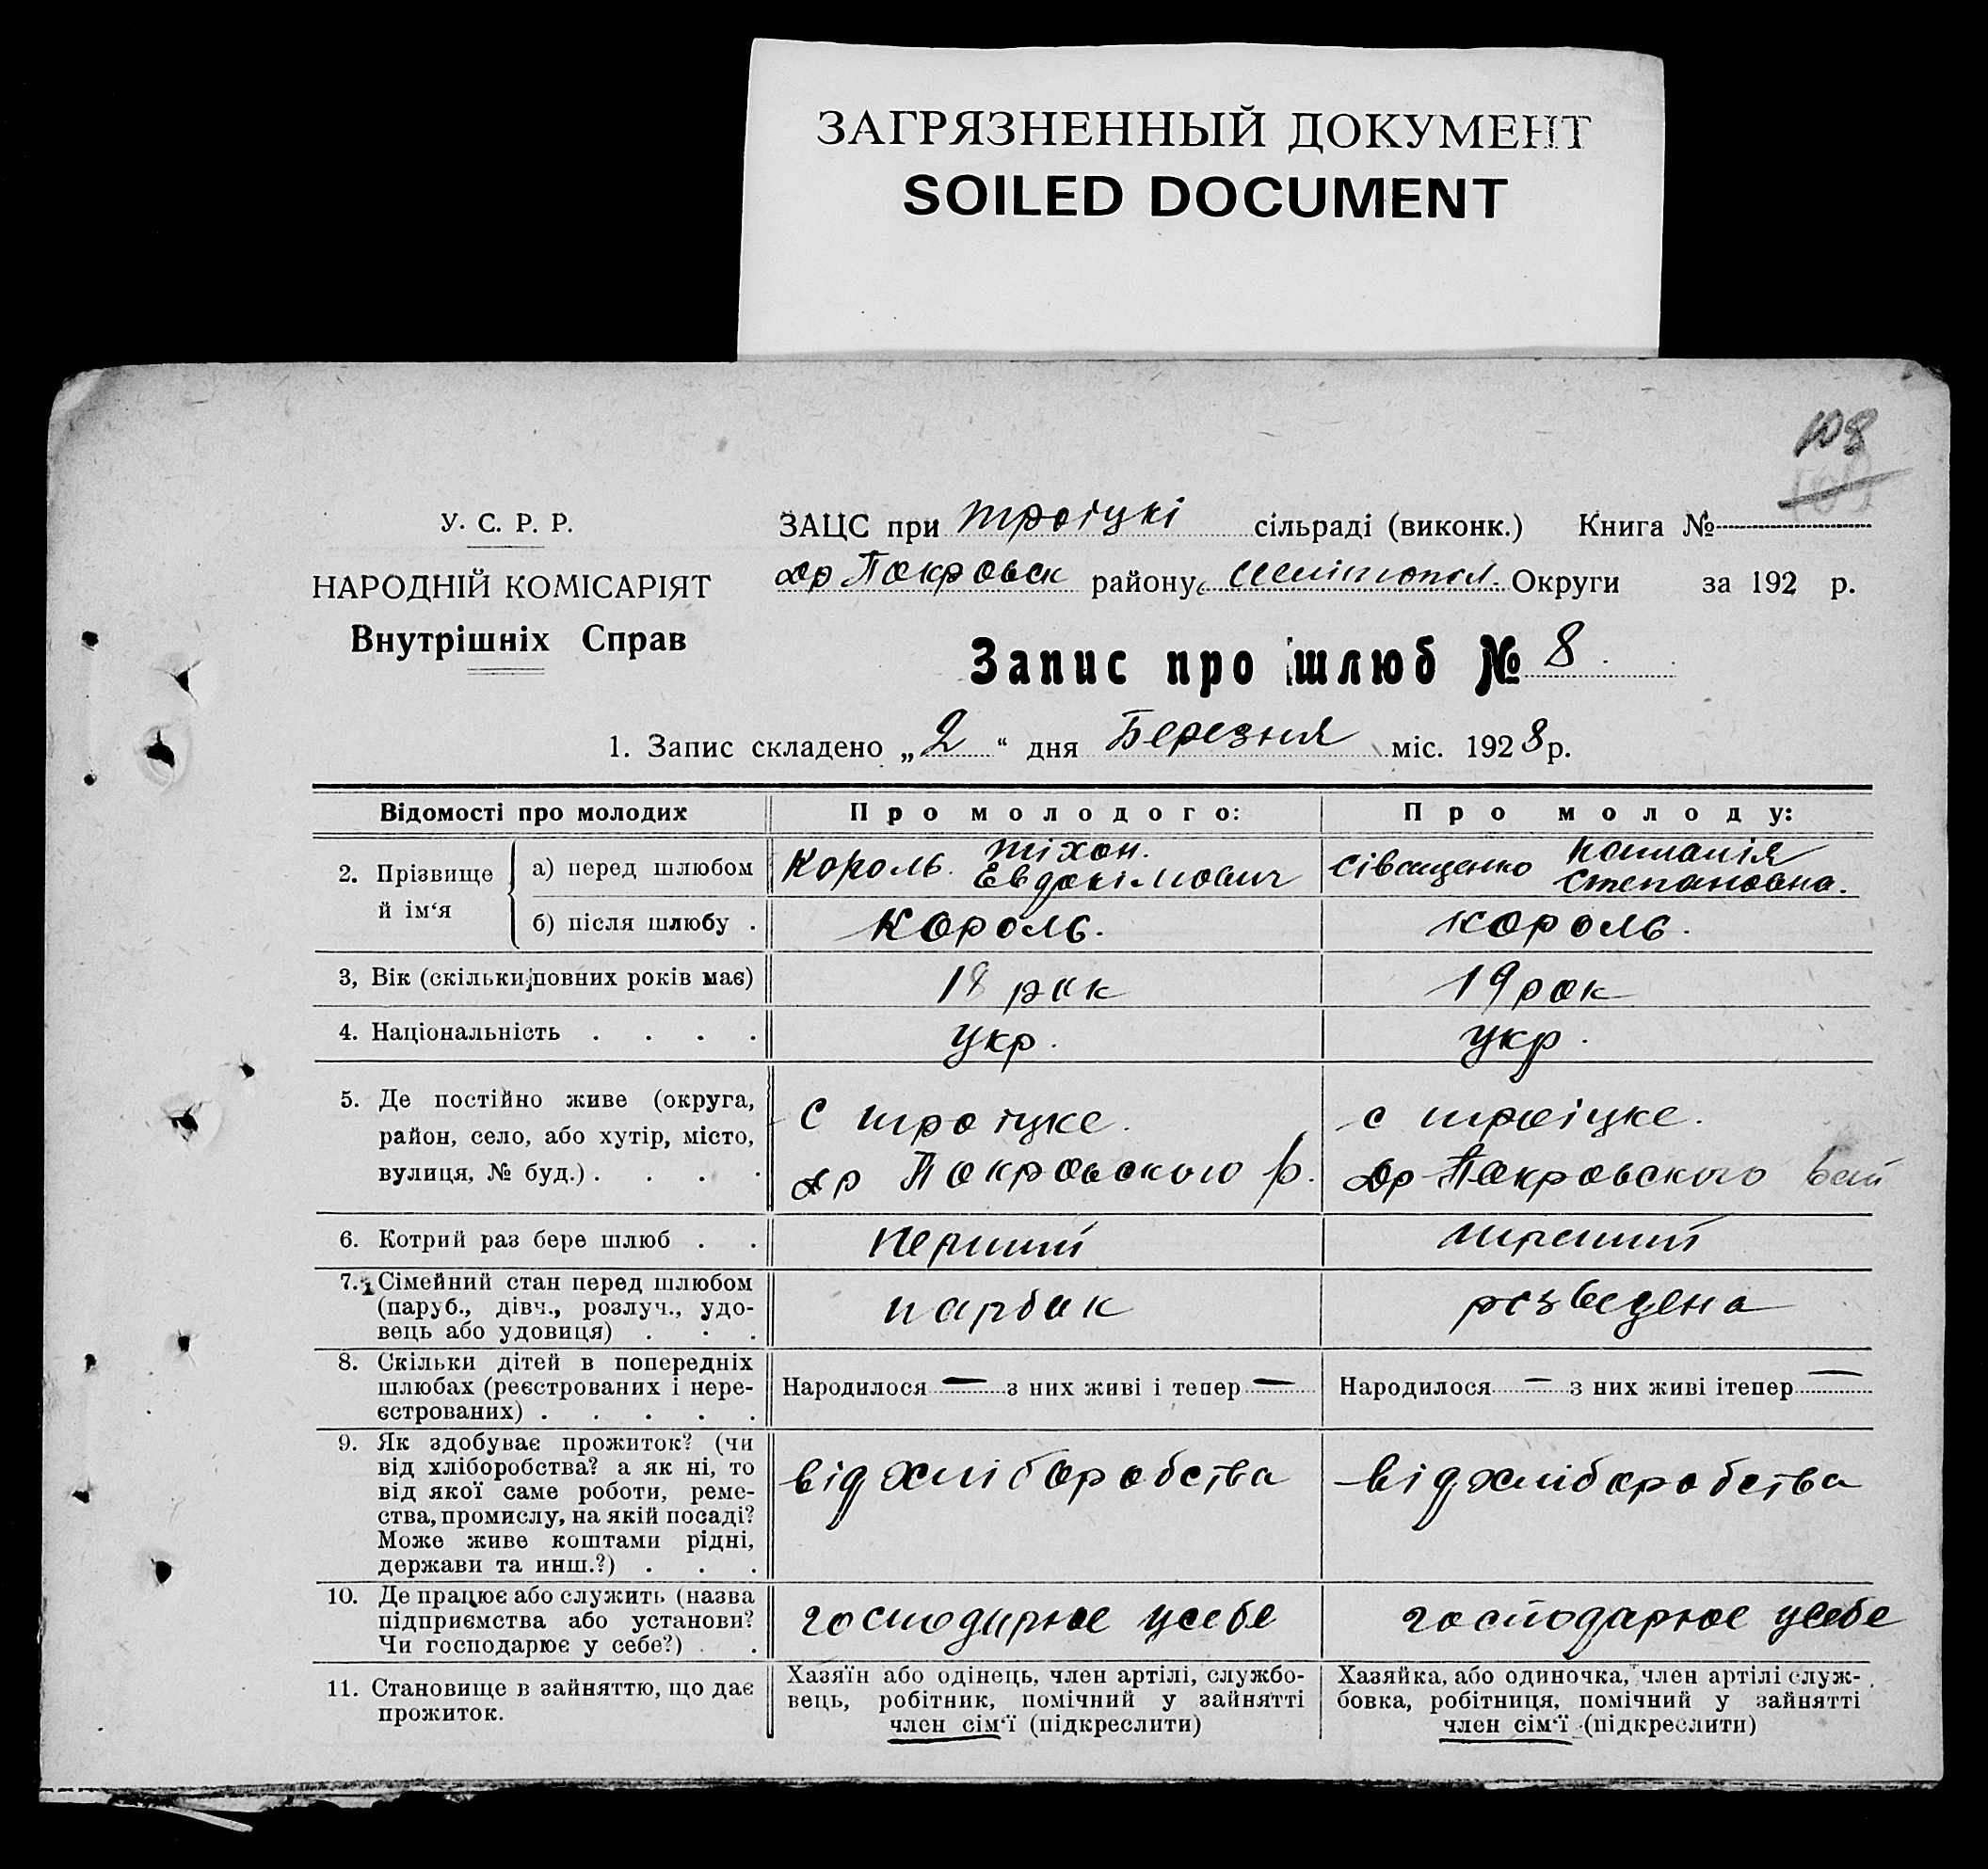 ЗАГРЯЗНЕННЫЙ ДОКУМЕНТ
SOILED DOCUMENT
108
У. С. Р. Р.
НАРОДНІЙ КОМІСАРІЯТ
Внутрішніх Справ
ЗАЦС при Троіцкі сільраді (виконк.) Книга №
Покровск району Округи за 192 р.
Запис про шлюб № 8
1. Запис складено „2“ дня Березня міс. 1928 р.
Відомості про молодих Про молодого: Про молоду:
2. Прізвище й ім‘я
а) перед шлюбом Король Тіхон. Евдокімович Сіващенко Степановна.
б) після шлюбу . Король. Король.
3, Вік (скільки повних років має) 18 рок 19 рок
4. Національність . . . . укр. укр.
5. Де постійно живе (округа,
район, село, або хутір, місто,
вулиця, № буд.) . . . .
с Троіцке.
Покровського р.
с Троіцке.
Покровського
6. Котрий раз бере шлюб . . перший
7. Сімейний стан перед шлюбом
(паруб., дівч., розлуч., удо-
вець або удовиця) . . .
парбок розведена
8. Скільки дітей в попередніх
шлюбах (реєстрованих і нере-
єстрованих) . . . . .
Народилося — з них живі і тепер — Народилося — з них живі ітепер —
9. Як здобуває прожиток? (чи
від хліборобства? а як ні, то
від якої саме роботи, реме-
ства, промислу, на якій посаді?
Може живе коштами рідні,
держави та инш.?) . . .
від хліборобства від хліборобства
10. Де працює або служить (назва
підприємства або установи?
Чи господарює у себе?) . .
господарює усебе господарює усебе
11. Становище в зайняттю, що дає
прожиток.
Хазяїн або одінець, член артілі, службо-
вець, робітник, помічний у зайнятті
член сім‘ї (підкреслити)
Хазяйка, або одиночка, член артілі служ-
бовка, робітниця, помічний у зайнятті
член сім‘ї (підкреслити)